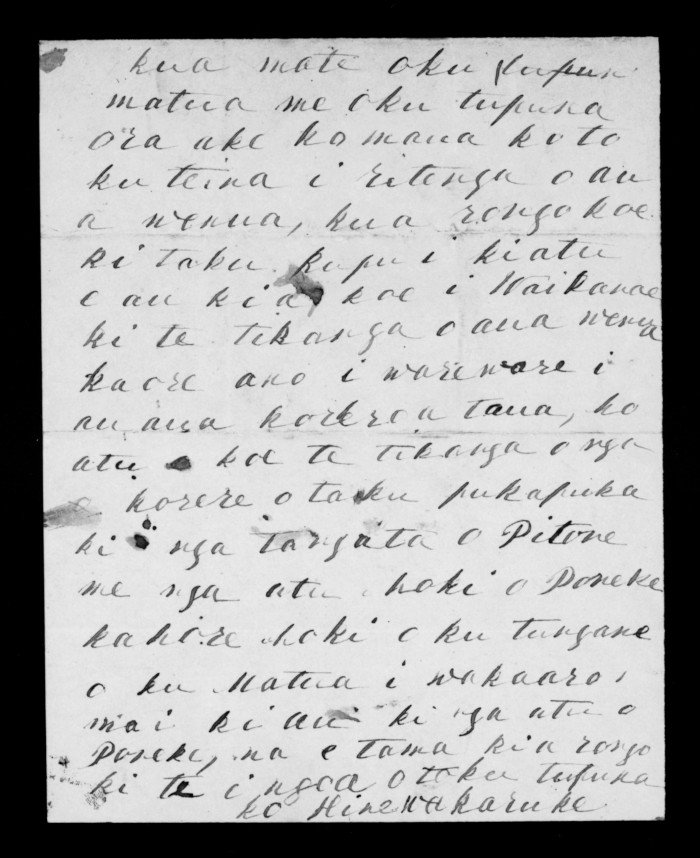 kua mate oku tupun
matua me oku tupuna
ora ake ko maua ko to
ku teina i ritenga o au
a wenua, kua rongo koe
ki taku kupu i kiatu
e au ki a koe i Waikanae
ki te tikanga o aua wenua
kaore ano i wareware i
au aua korero a taua, ho
atu koe te tikanga o nga
korere o taku pukapuka
ki nga tangata o Pitone
me nga atu hoki o Poneke
kahore hoki o ku tungane
o ku Matua i wakaaro
mai ki au ki nga atu o
Poneke, na e tama kia rongo
ki te ingoa o toku tupuna
ko Hinewakaruke